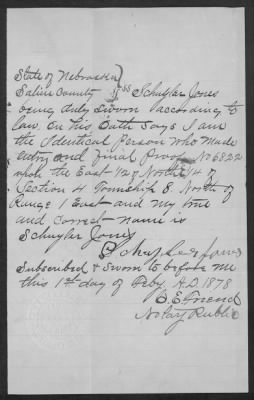 State of Nebraska
Saline County } SS Schuyler Jones
being duly sworn according to
law, on his Oath Says I am
the Identical Person who made
entry and final Proof No 6822
upon the East 1/2 of North 1/4 of
Section 4 Township 8. North of
Range 1 East and my true
and correct name is
Schuyler Jones
Schuyler Jones
Subscribed & sworn to before me
this 1st day of Feby A.D. 1878
E. E. Friend
Notary Public